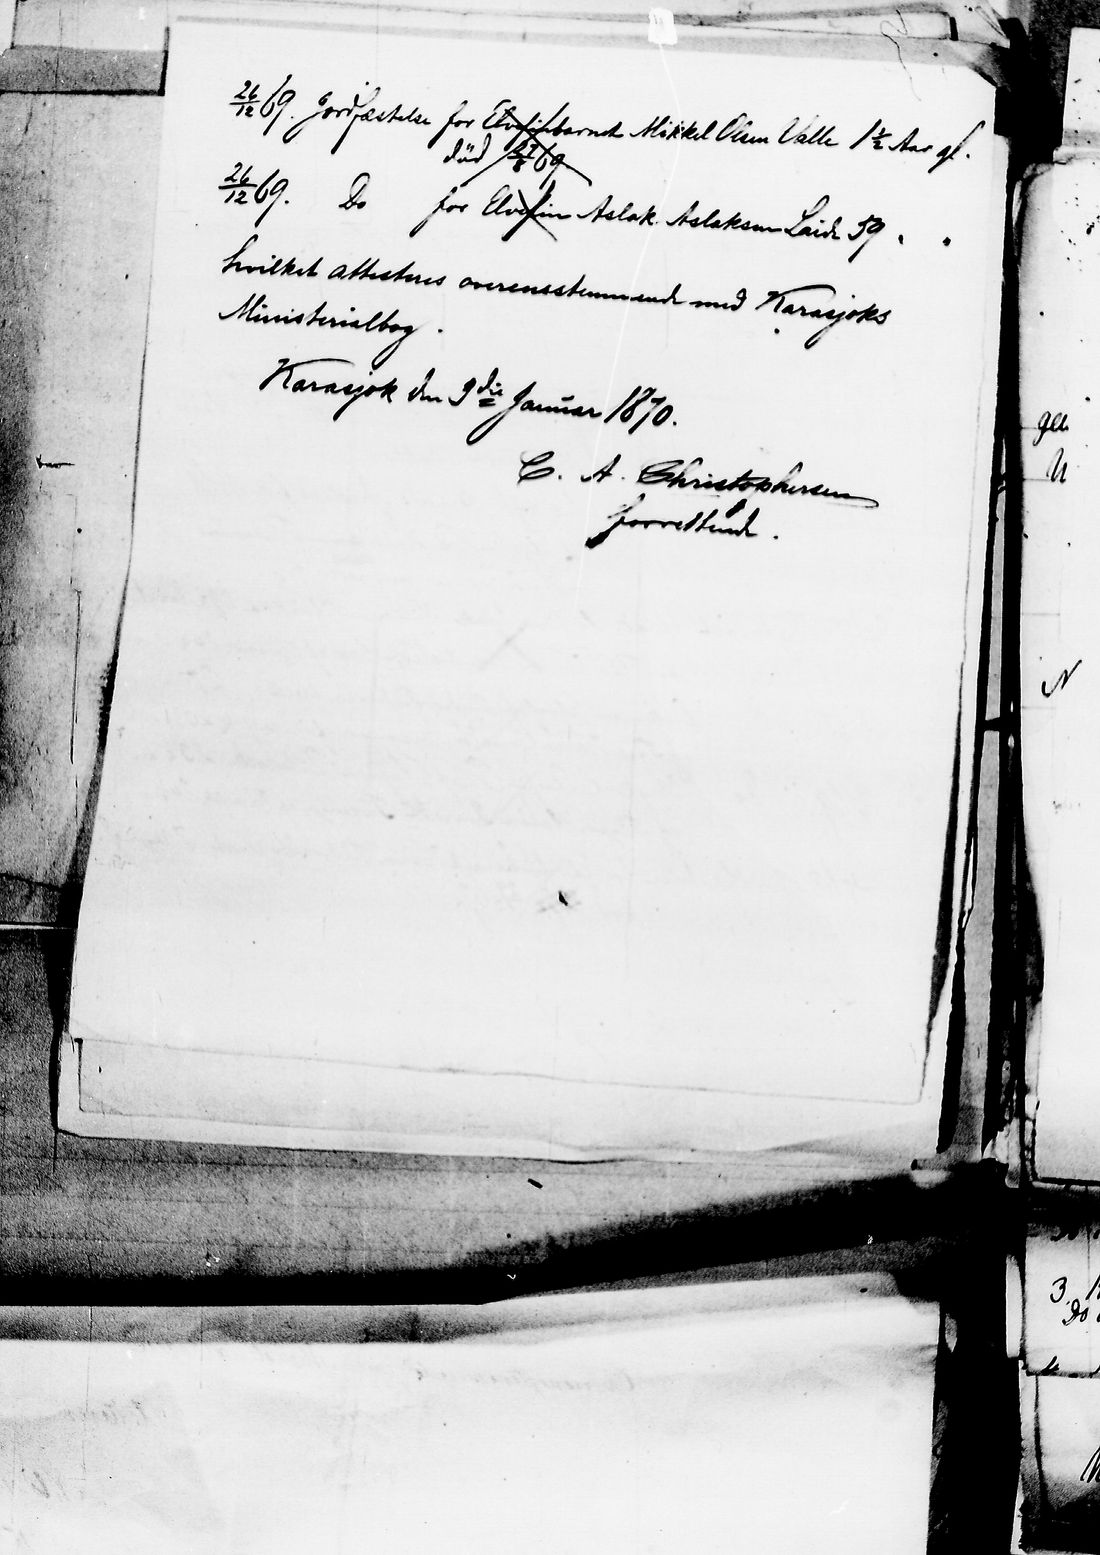 26/12 69. Jordfæstelse for Elvefinbarnet Mikkel Olsen Valle 1½ Aar gl.
død 27/8 69
26/12 69. Do for Elvefin Aslak Aslaksen Laiti 59 " "
hvilket attesteres overensstemmende med Karasjoks
Ministerialbog.
Karasjok den 9die Januar 1870.
C. A. Christophersen
forrettende.